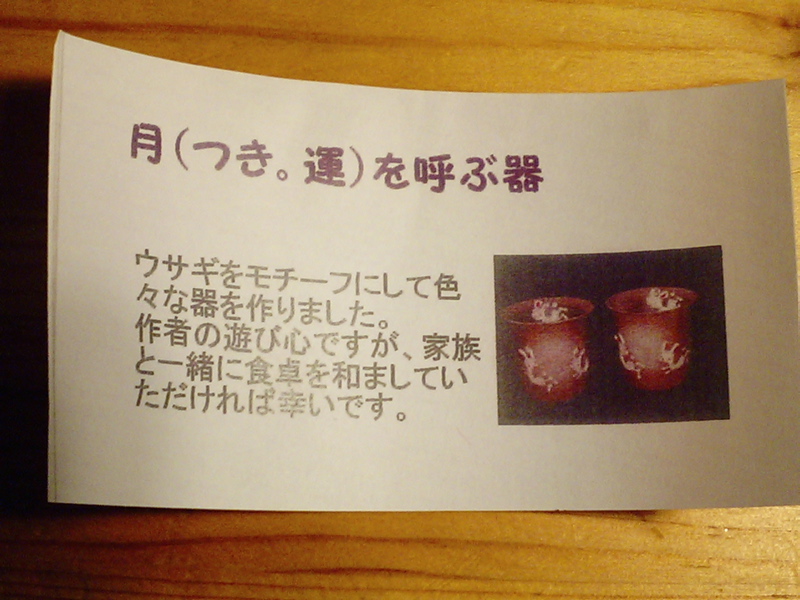 月(つき。運)を呼ぶ器
ウサギをモチーフにして色
々な器を作りました。
作者の遊び心ですが、家族
と一緒に食卓を和ましてい
ただければ幸いです。